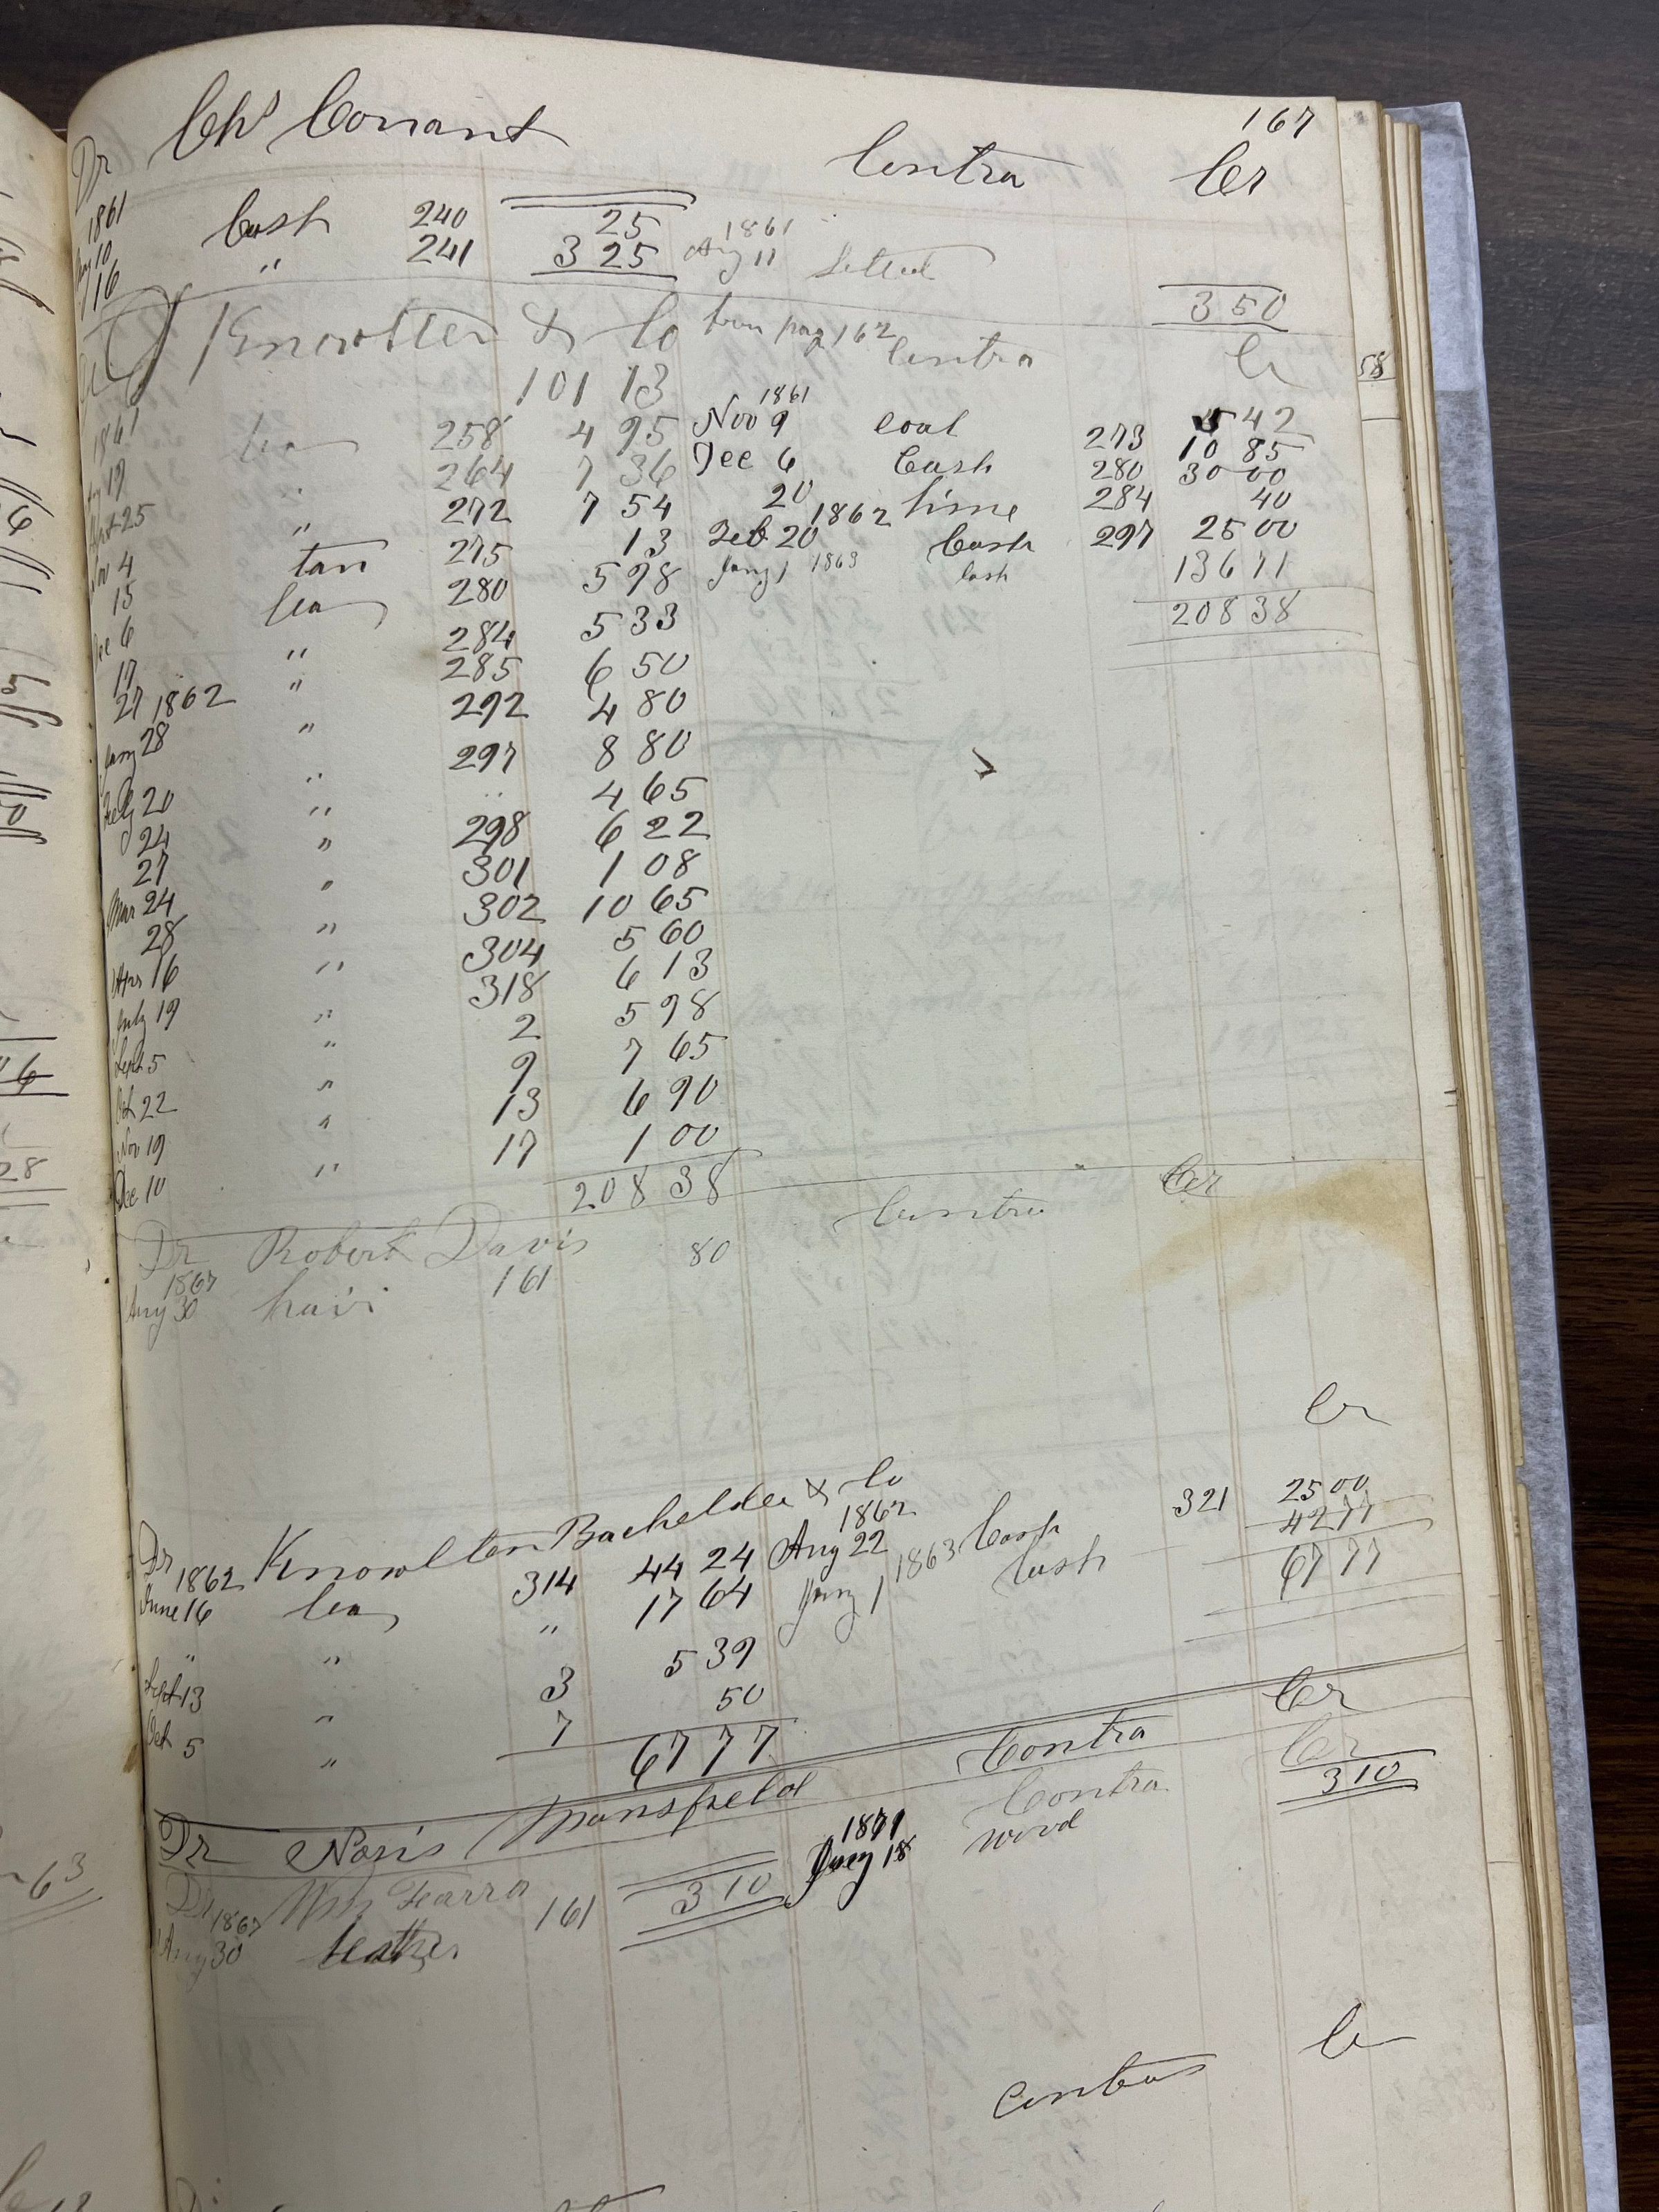 167
Dr Chs Conant Contra Cr
1861
10 Cash 240 25 1861
16 " 241 3 25 Aug 11 Settled 3 50
J Knowlten & Co from pag 162 Contra Cr
101 13
1861 1861
19 lea 258 4 95 Nov 9 coal 273 5 42
Sept 25 " 264 7 36 Dec 6 Cash 280 10 85
Nov 4 " 272 7 54 20 lime 284 30 00
15 tan 275 13 1862 40
Dec 6 lea 280 5 98 Feb 20 Cash 297 25 00
17 " 284 5 33 Jany 1 1863 Cash 136 71
27 " 285 6 50 208 38
1862
Jany 28 " 292 4 80
Feby 20 " 297 8 80
24 " " 4 65
27 " 298 6 22
Mar 24 " 301 1 08
28 " 302 10 65
Apr 16 " 304 5 60
July 19 " 318 6 13
Sept 5 " 2 5 98
Oct 22 " 9 7 65
Nov 19 " 13 6 90
Dec 10 " 17 1 00
208 38
Dr Robert Davis Contra Cr
1867
Aug 30 hair 161 80
Dr Knowlten Bachelder & Co Cr
1862 1862
June 16 lea 314 44 24 Aug 22 Cash 321 25 00
" " " 17 64 Jany 1 1863 Cash 42 77
Sept 13 " 3 5 39 67 77
Oct 5 " 7 50
67 77
Dr Noris Mansfield Contra Cr
Dr Wm Farra Contra Cr
1867 1871
Aug 30 leather 161 3 10 Jany 18 wood 3 10
Contra Cr
58